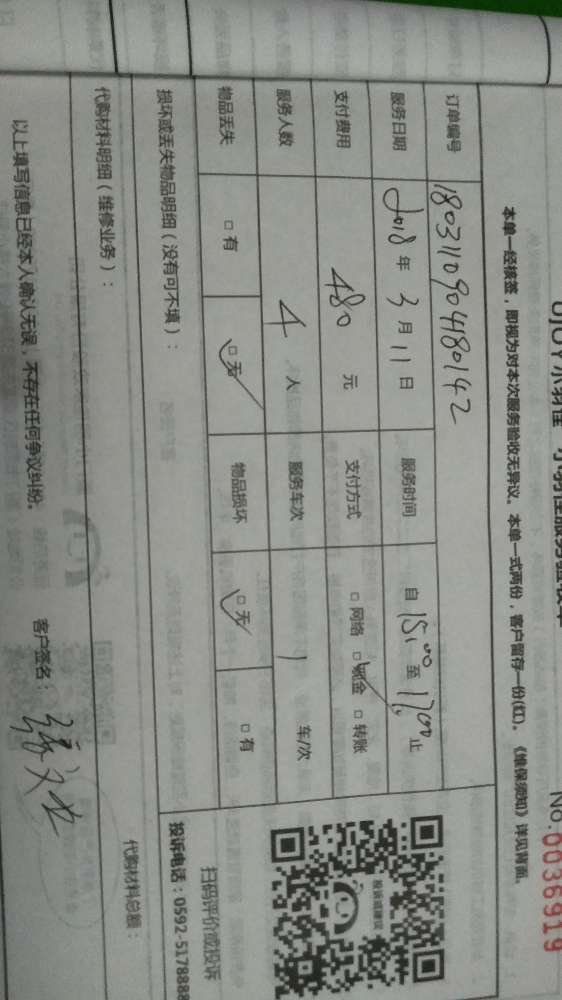 No.0036919
本单一经核签，即视为对本次服务验收无异议。本单一式两份，客户留存一份(红)。《维保须知》详见背面。
订单编号 180311090418 0142
服务日期 2018年3月11日 服务时间 自15:00至17:00止
支付费用 480元 支付方式 □网络 □现金 □转账
服务人数 4人 服务车次 1车/次
物品丢失 □有 □无 物品损坏 □无 □有
损坏或丢失物品明细（没有可不填）：
扫码评价或投诉
投诉电话：0592-5178888
投诉或建议
代购材料明细（维修业务）：
代购材料总额：
以上填写信息已经本人确认无误，不存在任何争议纠纷。 客户签名：